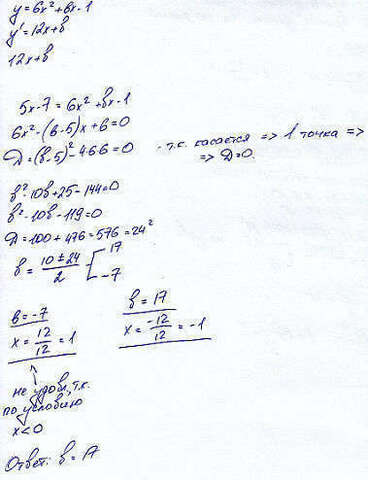 y=6x²+вx-1
y'=12x+в
12x+в
5x-7=6x²+вx-1
6x²-(в-5)x+6=0
Д=(в-5)²-4·6·6=0 - т.к. касается => 1 точка =>
=> Д=0.
в²-10в+25-144=0
в²-10в-119=0
Д=100+476=576=24²
в= (10±24)/2 17
-7
в=-7 в=17
x= 12/12 =1 x= -12/12 =-1
не удовл., т.к.
по условию
x<0
Ответ: в=17